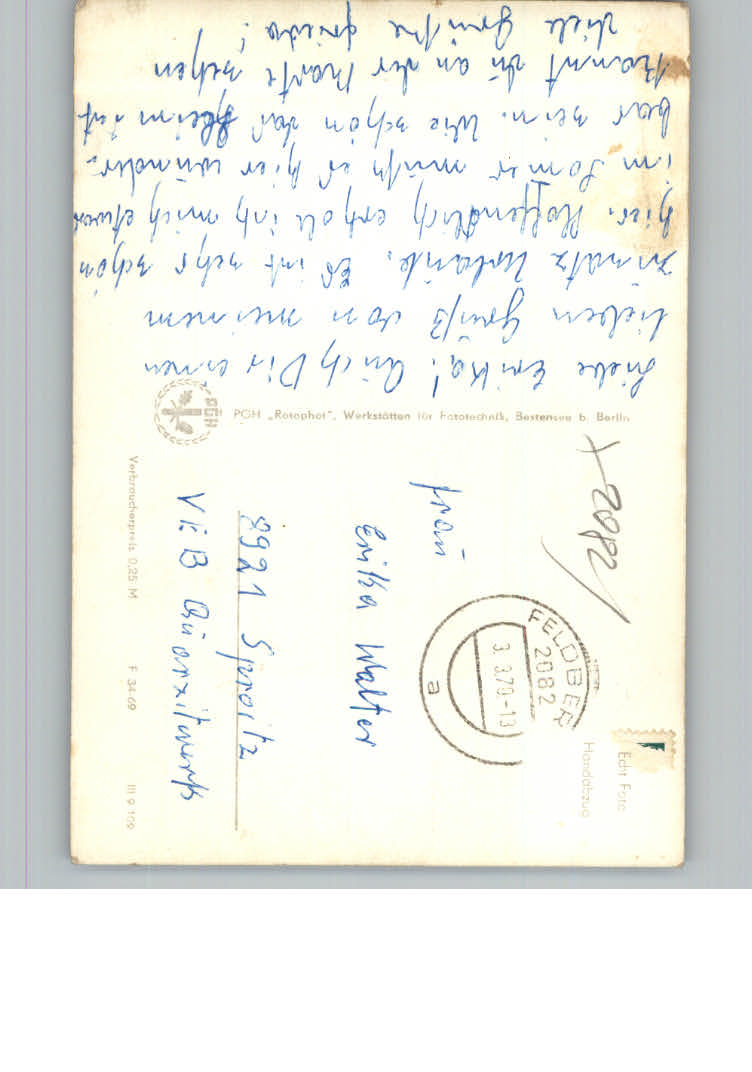 Liebe Erika! Auch Dir einen
lieben Gruß von meinem
zusatz Urlaub. Es ist sehr schön
hier. Hoffendlich erhole ich mich etwas
im Somer muß es hier wunder-
bar sein. Wie schön das Heim ist
kannst du an der Karte sehen
viele Grüße Frieda!
PGH
PGH „Rosophot", Werkstätten für Fototechnik, Bestensee b. Berlin
x 2082
FELDBERG
2082
3.3.70-13
a
Echt Foto
Handabzug
Frau
Erika Walter
8921 Sproitz
VEB Quarzitwerk
Verbraucherpreis 0,25 M F 34-69 III 9 109